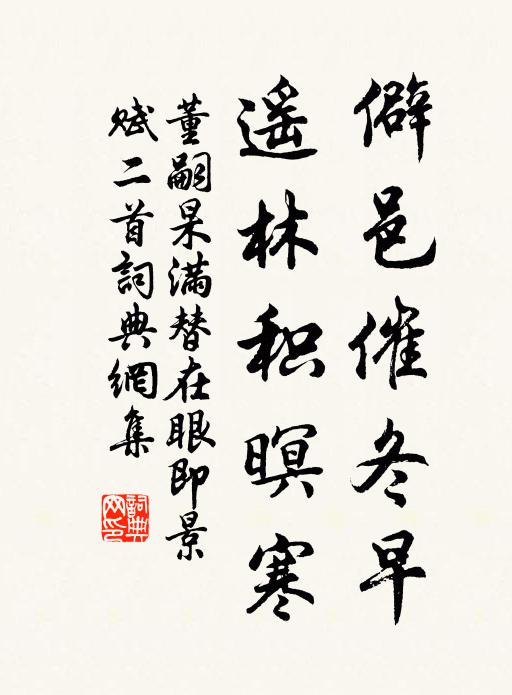 僻邑催冬早
遥林积暝寒
董嗣杲满替在眼即景
赋二首詞典網集
詞典网印